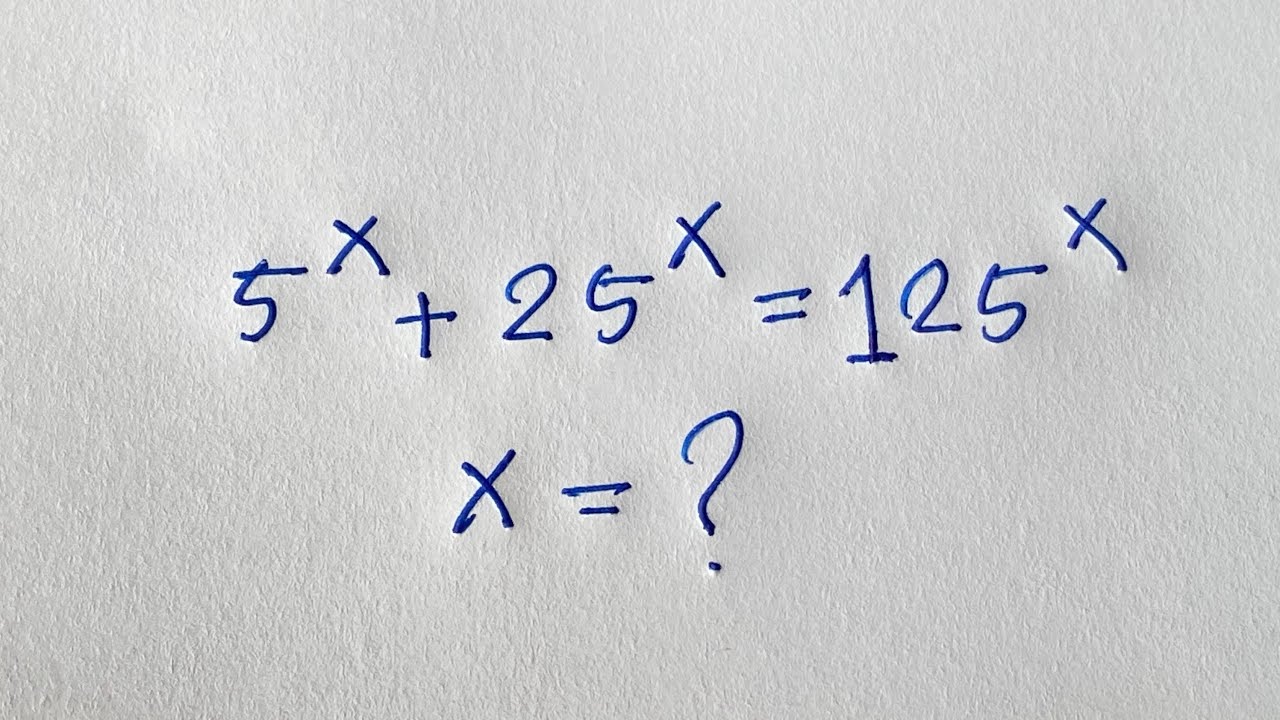 5^x + 25^x = 125^x
x = ?